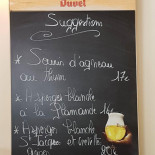 Duvel
Suggestions
* Souris d'agneau
au Thym 17€
* Asperges blanche
à la Flamande
* Asperges blanche
St Jacques et crevette